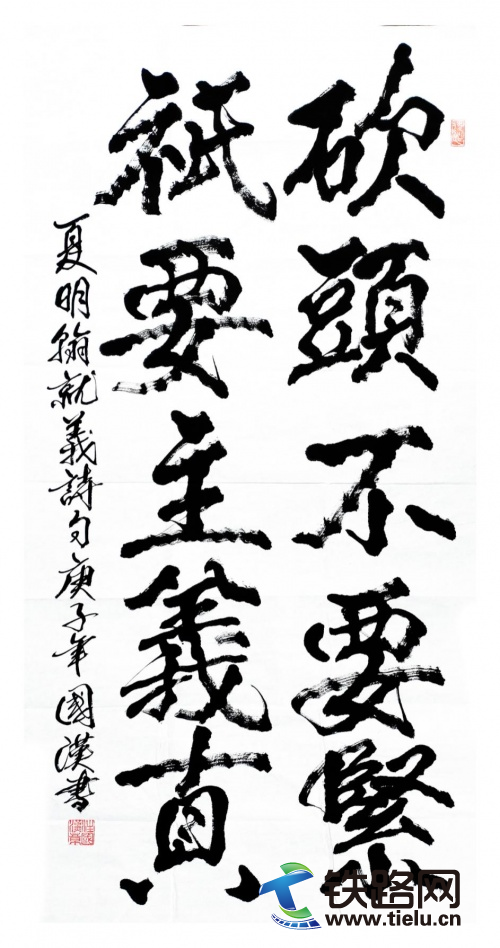 砍頭不要緊
祇要主義真
夏明翰就義詩句庚子年國漢書
铁路网
www.tielu.cn